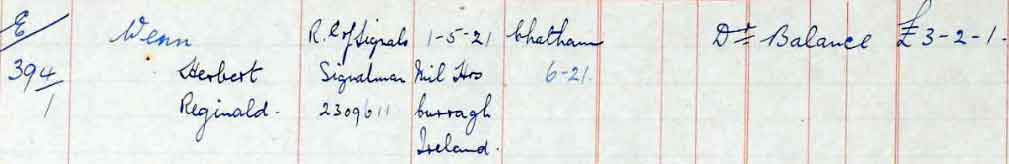 E/ Wenn R.C of Signals 1-5-21 Chatham Dr Balance £3-2-1.
394/1 Herbert Signalman Mil Hos 6-21.
Reginald. 2309611 Curragh
Ireland.